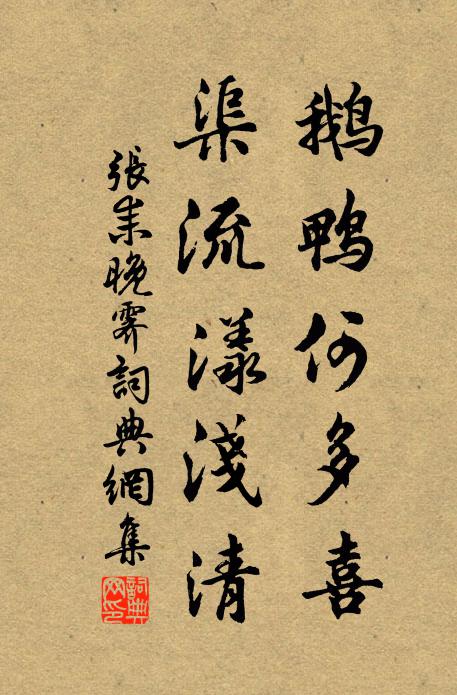 鵝鴨何多喜
渠流漾淺清
張耒晚霽詞典網集
詞典网印